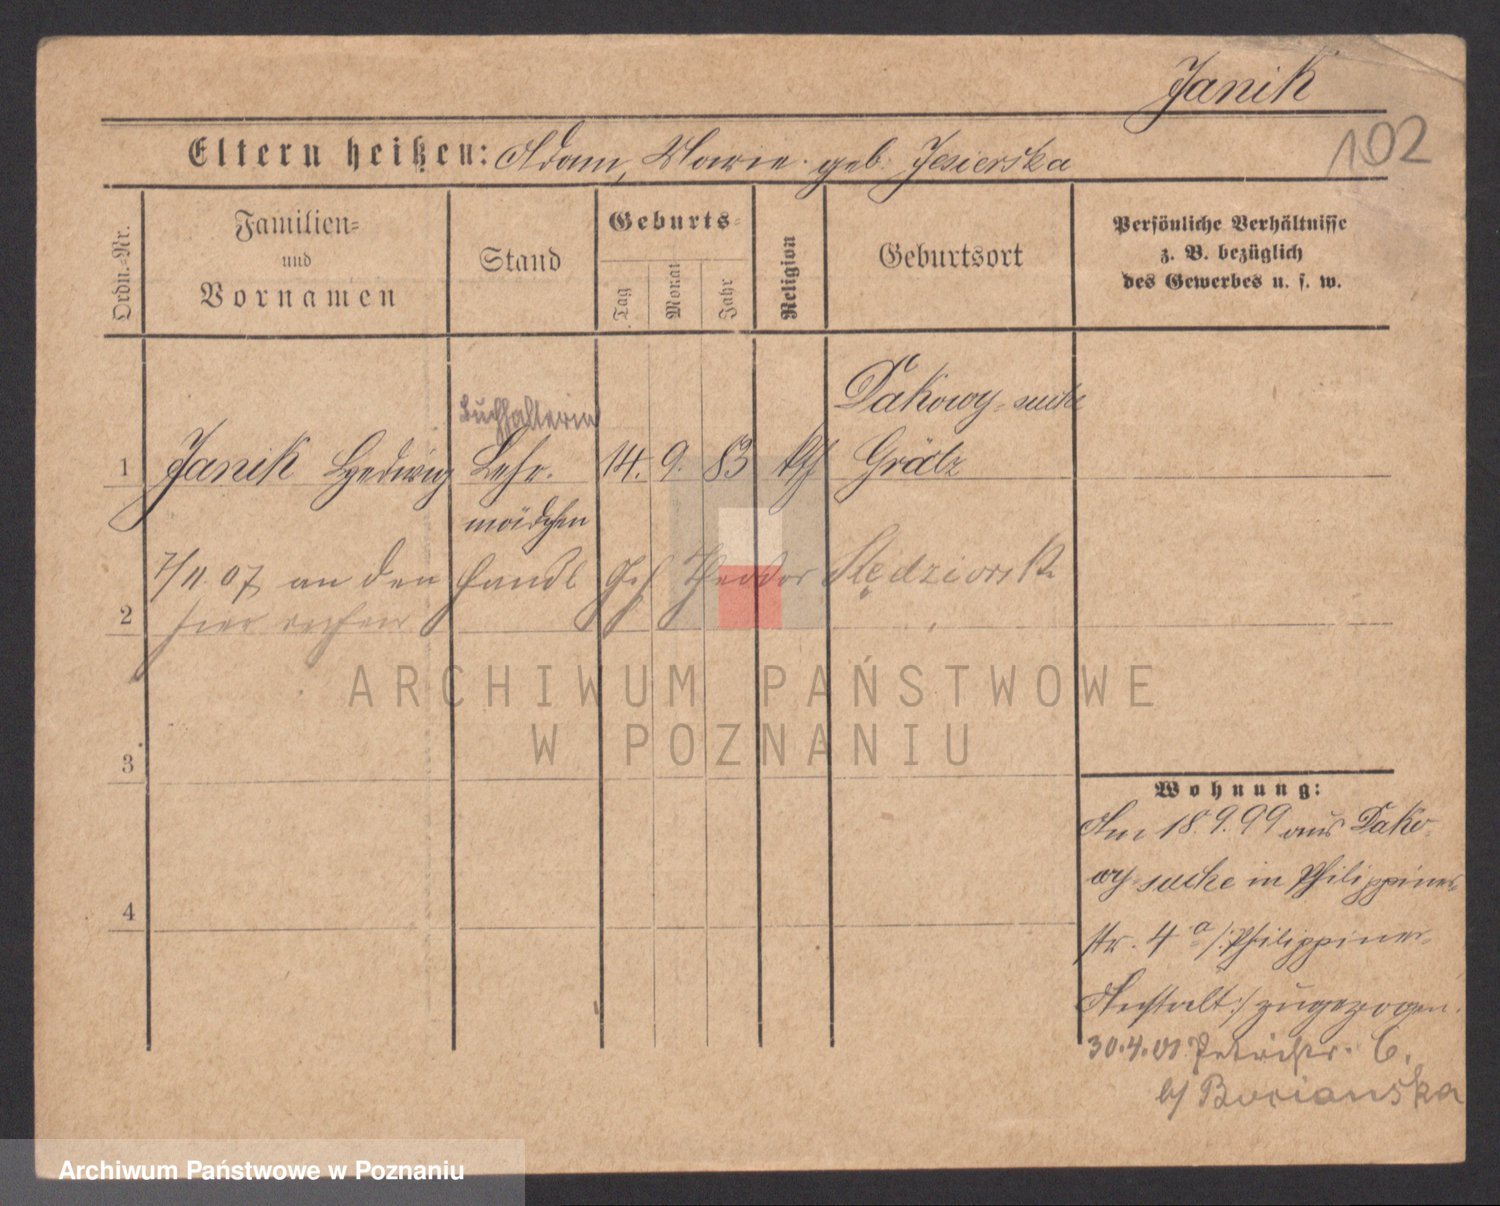 Janik
102
Eltern heißen: Adam, Marie geb. Jesierska
Ordn.-Nr.
Familien-
und
Vornamen
Stand
Geburts-
Tag
Monat
Jahr
Religion
Geburtsort
Persönliche Verhältnisse
z. B. bezüglich
des Gewerbes u. s. w.
Buchhalterin
Dakowy-suche
1 Janik Hedwig Lehr- 14. 9. 83 kth Grätz
mädchen
7/11.07 an den Handl Theodor
2 hier
ARCHIWUM PAŃSTWOWE
W POZNANIU
3
Wohnung:
Am 18.9.99 aus Dako-
wy-suche in Philippinen
4
str. 4a /:Philippinen-
Anstalt:/ zugezogen.
30.4.01. Petristr. 6.
b/ Bocianska
Archiwum Państwowe w Poznaniu